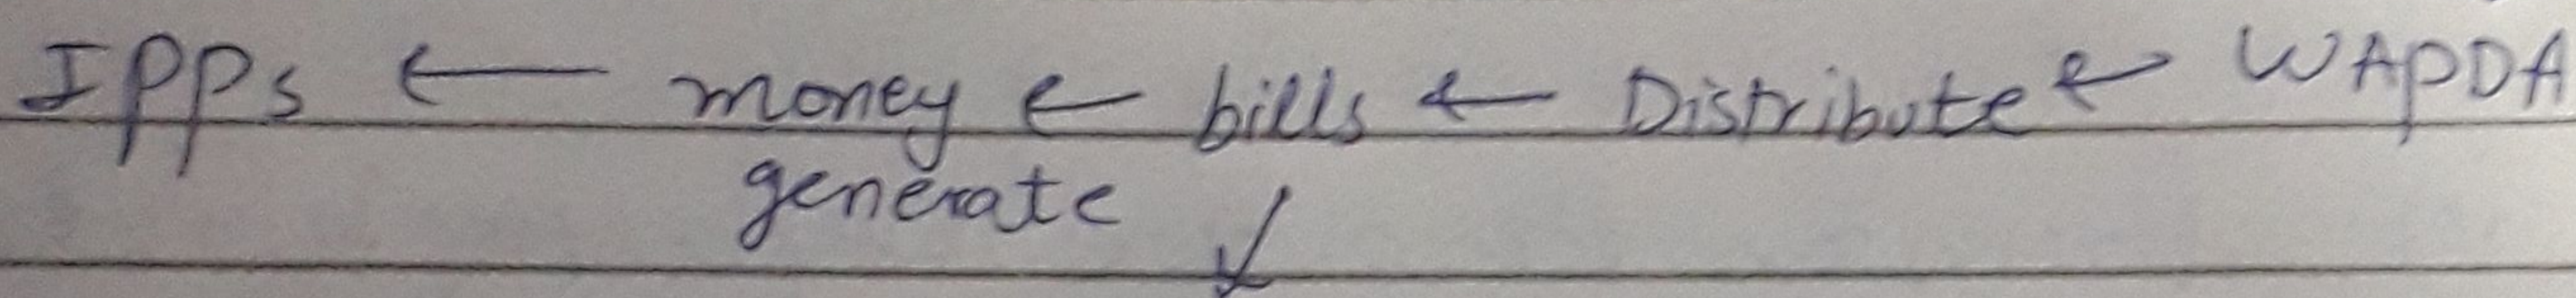 IPPs ← money ← bills ← Distribute ← WAPDA
generate ↙